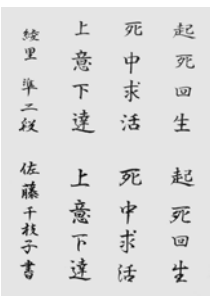 起死回生 起死回生
死中求活 死中求活
上意下達 上意下達
綾里 準二段 佐藤千枝子書